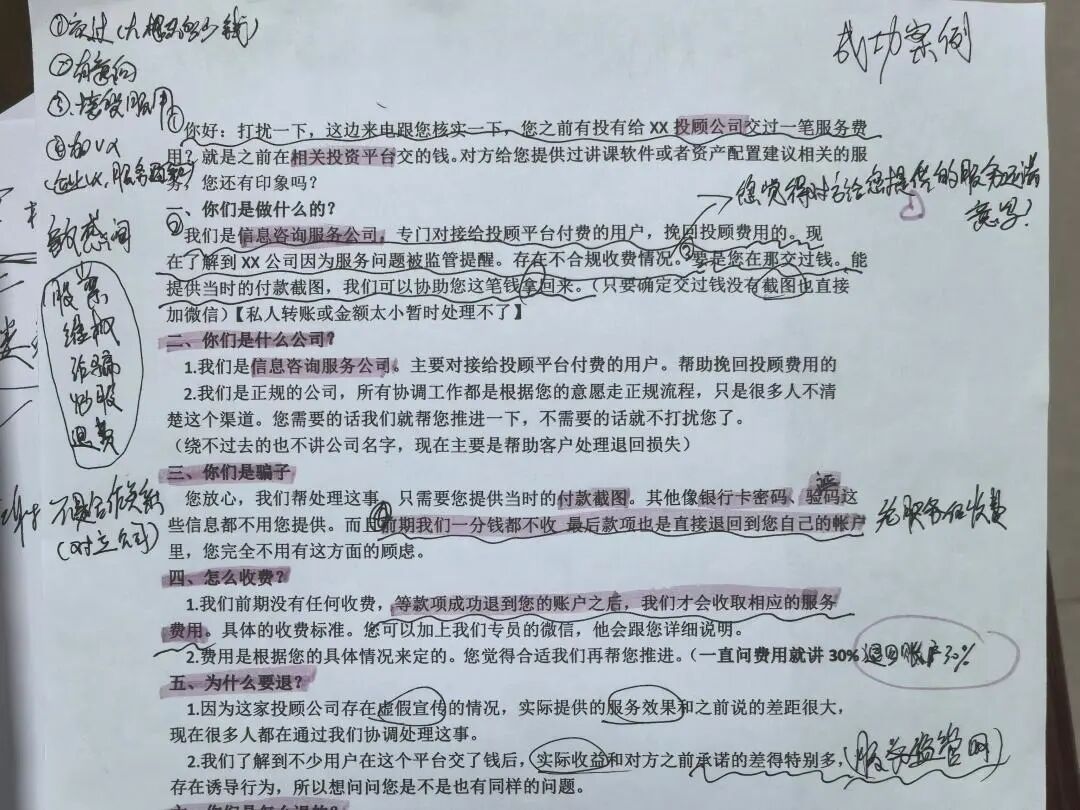 成功案例
②有意向
你好：打扰一下，这边来电跟您核实一下，您之前有投有给 XX 投顾公司交过一笔服务费
用？就是之前在相关投资平台交的钱。对方给您提供过讲课软件或者资产配置建议相关的服
务，您还有印象吗？
您觉得对方给您提供的服务还满
意吗？
一、你们是做什么的？
我们是信息咨询服务公司，专门对接给投顾平台付费的用户，挽回投顾费用的。现
在了解到 XX 公司因为服务问题被监管提醒。存在不合规收费情况。要是您在那交过钱。能
提供当时的付款截图，我们可以协助您这笔钱拿回来。（只要确定交过钱没有截图也直接
加微信）【私人转账或金额太小暂时处理不了】
股票
维权
诈骗
炒股
退费
二、你们是什么公司？
1.我们是信息咨询服务公司。主要对接给投顾平台付费的用户。帮助挽回投顾费用的
2.我们是正规的公司，所有协调工作都是根据您的意愿走正规流程，只是很多人不清
楚这个渠道。您需要的话我们就帮您推进一下，不需要的话就不打扰您了。
（绕不过去的也不讲公司名字，现在主要是帮助客户处理退回损失）
三、你们是骗子
您放心，我们帮处理这事，只需要您提供当时的付款截图。其他像银行卡密码、验码这
些信息都不用您提供。而且前期我们一分钱都不收 最后款项也是直接退回到您自己的帐户
里，您完全不用有这方面的顾虑。
（对立公司）
四、怎么收费？
1.我们前期没有任何收费，等款项成功退到您的账户之后，我们才会收取相应的服务
费用。具体的收费标准。您可以加上我们专员的微信，他会跟您详细说明。
2.费用是根据您的具体情况来定的。您觉得合适我们再帮您推进。（一直问费用就讲 30%
退回账户30%
五、为什么要退？
1.因为这家投顾公司存在虚假宣传的情况，实际提供的服务效果和之前说的差距很大，
现在很多人都在通过我们协调处理这事。
2.我们了解到不少用户在这个平台交了钱后，实际收益和对方之前承诺的差得特别多，
（服务监管网）
存在诱导行为，所以想问问您是不是也有同样的问题。
六、你们是怎么退的？